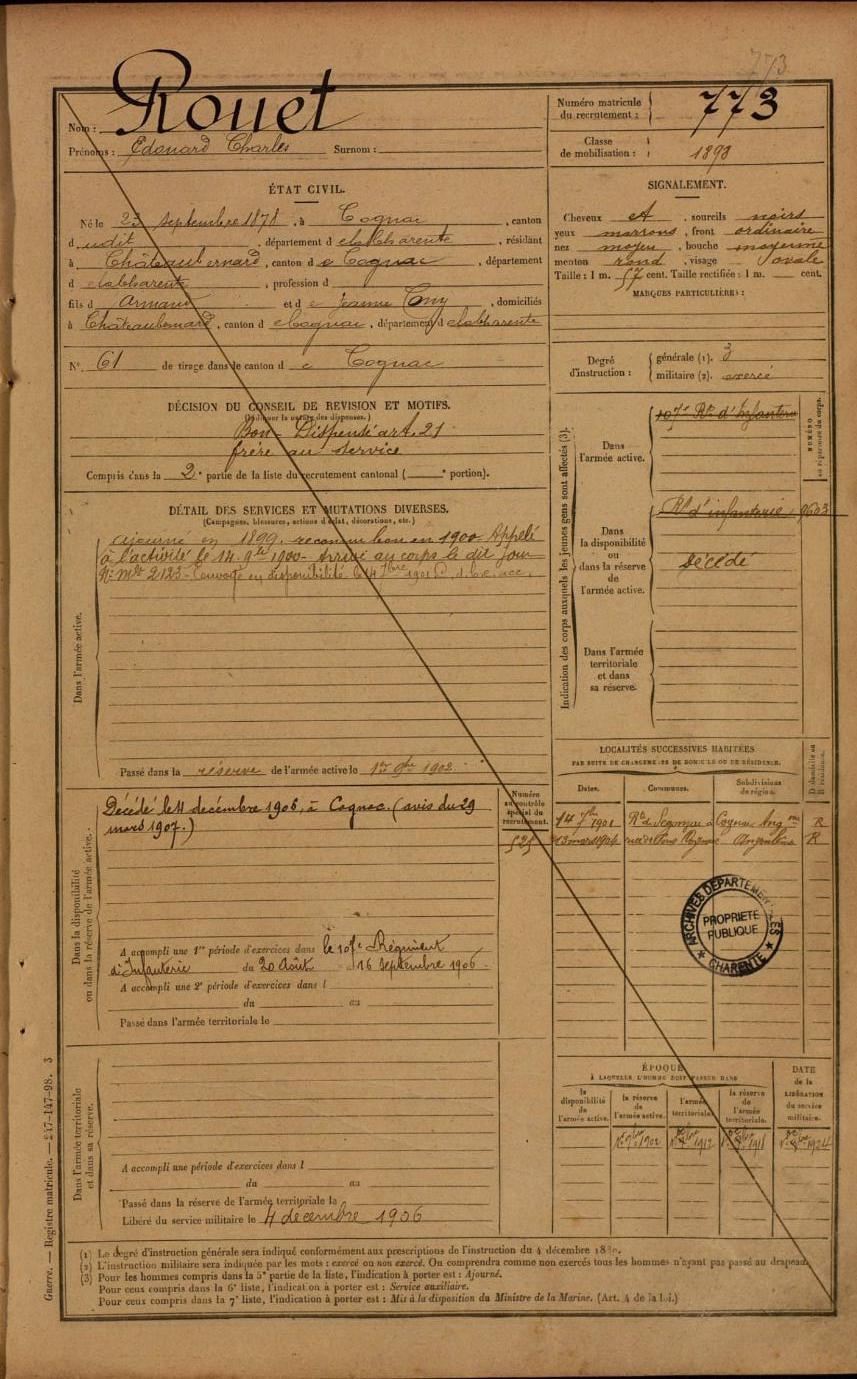 773
Nom : Rouet
Prénoms : Edouard Charles Surnom :
Numéro matricule du recrutement : 773
Classe de mobilisation : 1898
ÉTAT CIVIL.
Né le 23 septembre 1878, à Cognac, canton
dudit, département de la Charente, résidant
à Châteaubernard, canton de Cognac, département
de la Charente, profession d
fils d Armand et de Jeanne , domiciliés
à Châteaubernard, canton de Cognac, département de la Charente
N° 61 de tirage dans le canton de Cognac
SIGNALEMENT.
Cheveux et , sourcils noirs
yeux marrons, front ordinaire
nez moyen, bouche moyenne
menton rond, visage ovale
Taille : 1 m. 57 cent. Taille rectifiée : 1 m. cent.
MARQUES PARTICULIÈRES :
Degré d'instruction :
générale (1). 3
militaire (2). exercé
DÉCISION DU CONSEIL DE REVISION ET MOTIFS.
(Indiquer la nature des dispenses.)
Bon - Dispensé art. 21
frère au service
Compris dans la 2e partie de la liste du recrutement cantonal ( e portion).
DÉTAIL DES SERVICES ET MUTATIONS DIVERSES.
(Campagnes, blessures, actions d'éclat, décorations, etc.)
Dans l'armée active.
Ajourné en 1899, reconnu bon en 1900 Appelé
à l'activité le 14 9bre 1900 - Arrivé au corps le dit jour
N° Mle 2123 - Envoyé en disponibilité le 14 7bre 1901 C. d. b. c. acc.
Passé dans la réserve de l'armée active le 1er 9bre 1902.
Indication des corps auxquels les jeunes gens sont affectés (3).
NUMÉRO au répertoire du corps.
Dans l'armée active.
107e Rt d'Infanterie
Dans la disponibilité ou dans la réserve de l'armée active.
Rt d'infanterie
Décédé
Dans l'armée territoriale et dans sa réserve.
LOCALITÉS SUCCESSIVES HABITÉES
PAR SUITE DE CHANGEMENTS DE DOMICILE OU DE RÉSIDENCE.
Dates. Communes. Subdivisions de région. D. domicile ou R. résidence.
14 7bre 1901 Rt de Segonzac à Cognac R
13 mars 1904 rue de Pons Cognac Angoulême R
ARCHIVES DÉPARTEMENTALES
PROPRIÉTÉ PUBLIQUE
CHARENTE
Numéro au contrôle spécial du recrutement.
525
Dans la disponibilité ou dans la réserve de l'armée active.
Décédé le 4 décembre 1906, à Cognac. (avis du 29
mars 1907.)
A accompli une 1re période d'exercices dans le 107e Régiment
d'Infanterie du 20 Août 16 Septembre 1906
A accompli une 2e période d'exercices dans l
du au
Passé dans l'armée territoriale le
Dans l'armée territoriale et dans sa réserve.
A accompli une période d'exercices dans l
du au
Passé dans la réserve de l'armée territoriale le
Libéré du service militaire le 4 décembre 1906
ÉPOQUE
À LAQUELLE L'HOMME DOIT PASSER DANS
la disponibilité de l'armée active.
la réserve de l'armée active.
l'armée territoriale.
la réserve de l'armée territoriale.
DATE de la LIBÉRATION du service militaire.
1er 9bre 1902
(1) Le degré d'instruction générale sera indiqué conformément aux prescriptions de l'instruction du 4 décembre
(2) L'instruction militaire sera indiquée par les mots : exercé ou non exercé. On comprendra comme non exercés tous les hommes n'ayant pas passé au drapeau.
(3) Pour les hommes compris dans la 5e partie de la liste, l'indication à porter est : Ajourné.
Pour ceux compris dans la 6e liste, l'indication à porter est : Service auxiliaire.
Pour ceux compris dans la 7e liste, l'indication à porter est : Mis à la disposition du Ministre de la Marine. (Art. 4 de la loi.)
Guerre. — Registre matricule. — 247-147-98. 3